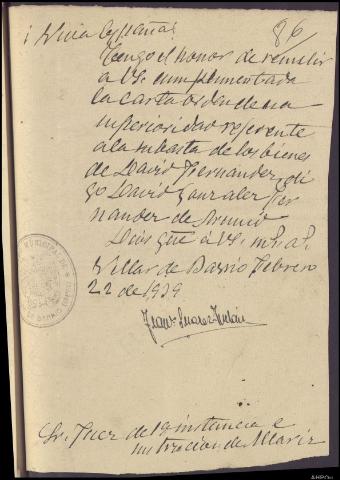 ¡Viva España!
86
Tengo el honor de remitir
a VS. cumplimentada
la carta orden de esa
superioridad referente
a la subasta de los bienes
de David Fernandez, di
go David Gonzalez Fer
nandez de
Dios gue a VS. ms. as.
Villar de Barrio Febrero
22 de 1939
Sr. Juez de 1ª instancia e
instruccion de Allariz